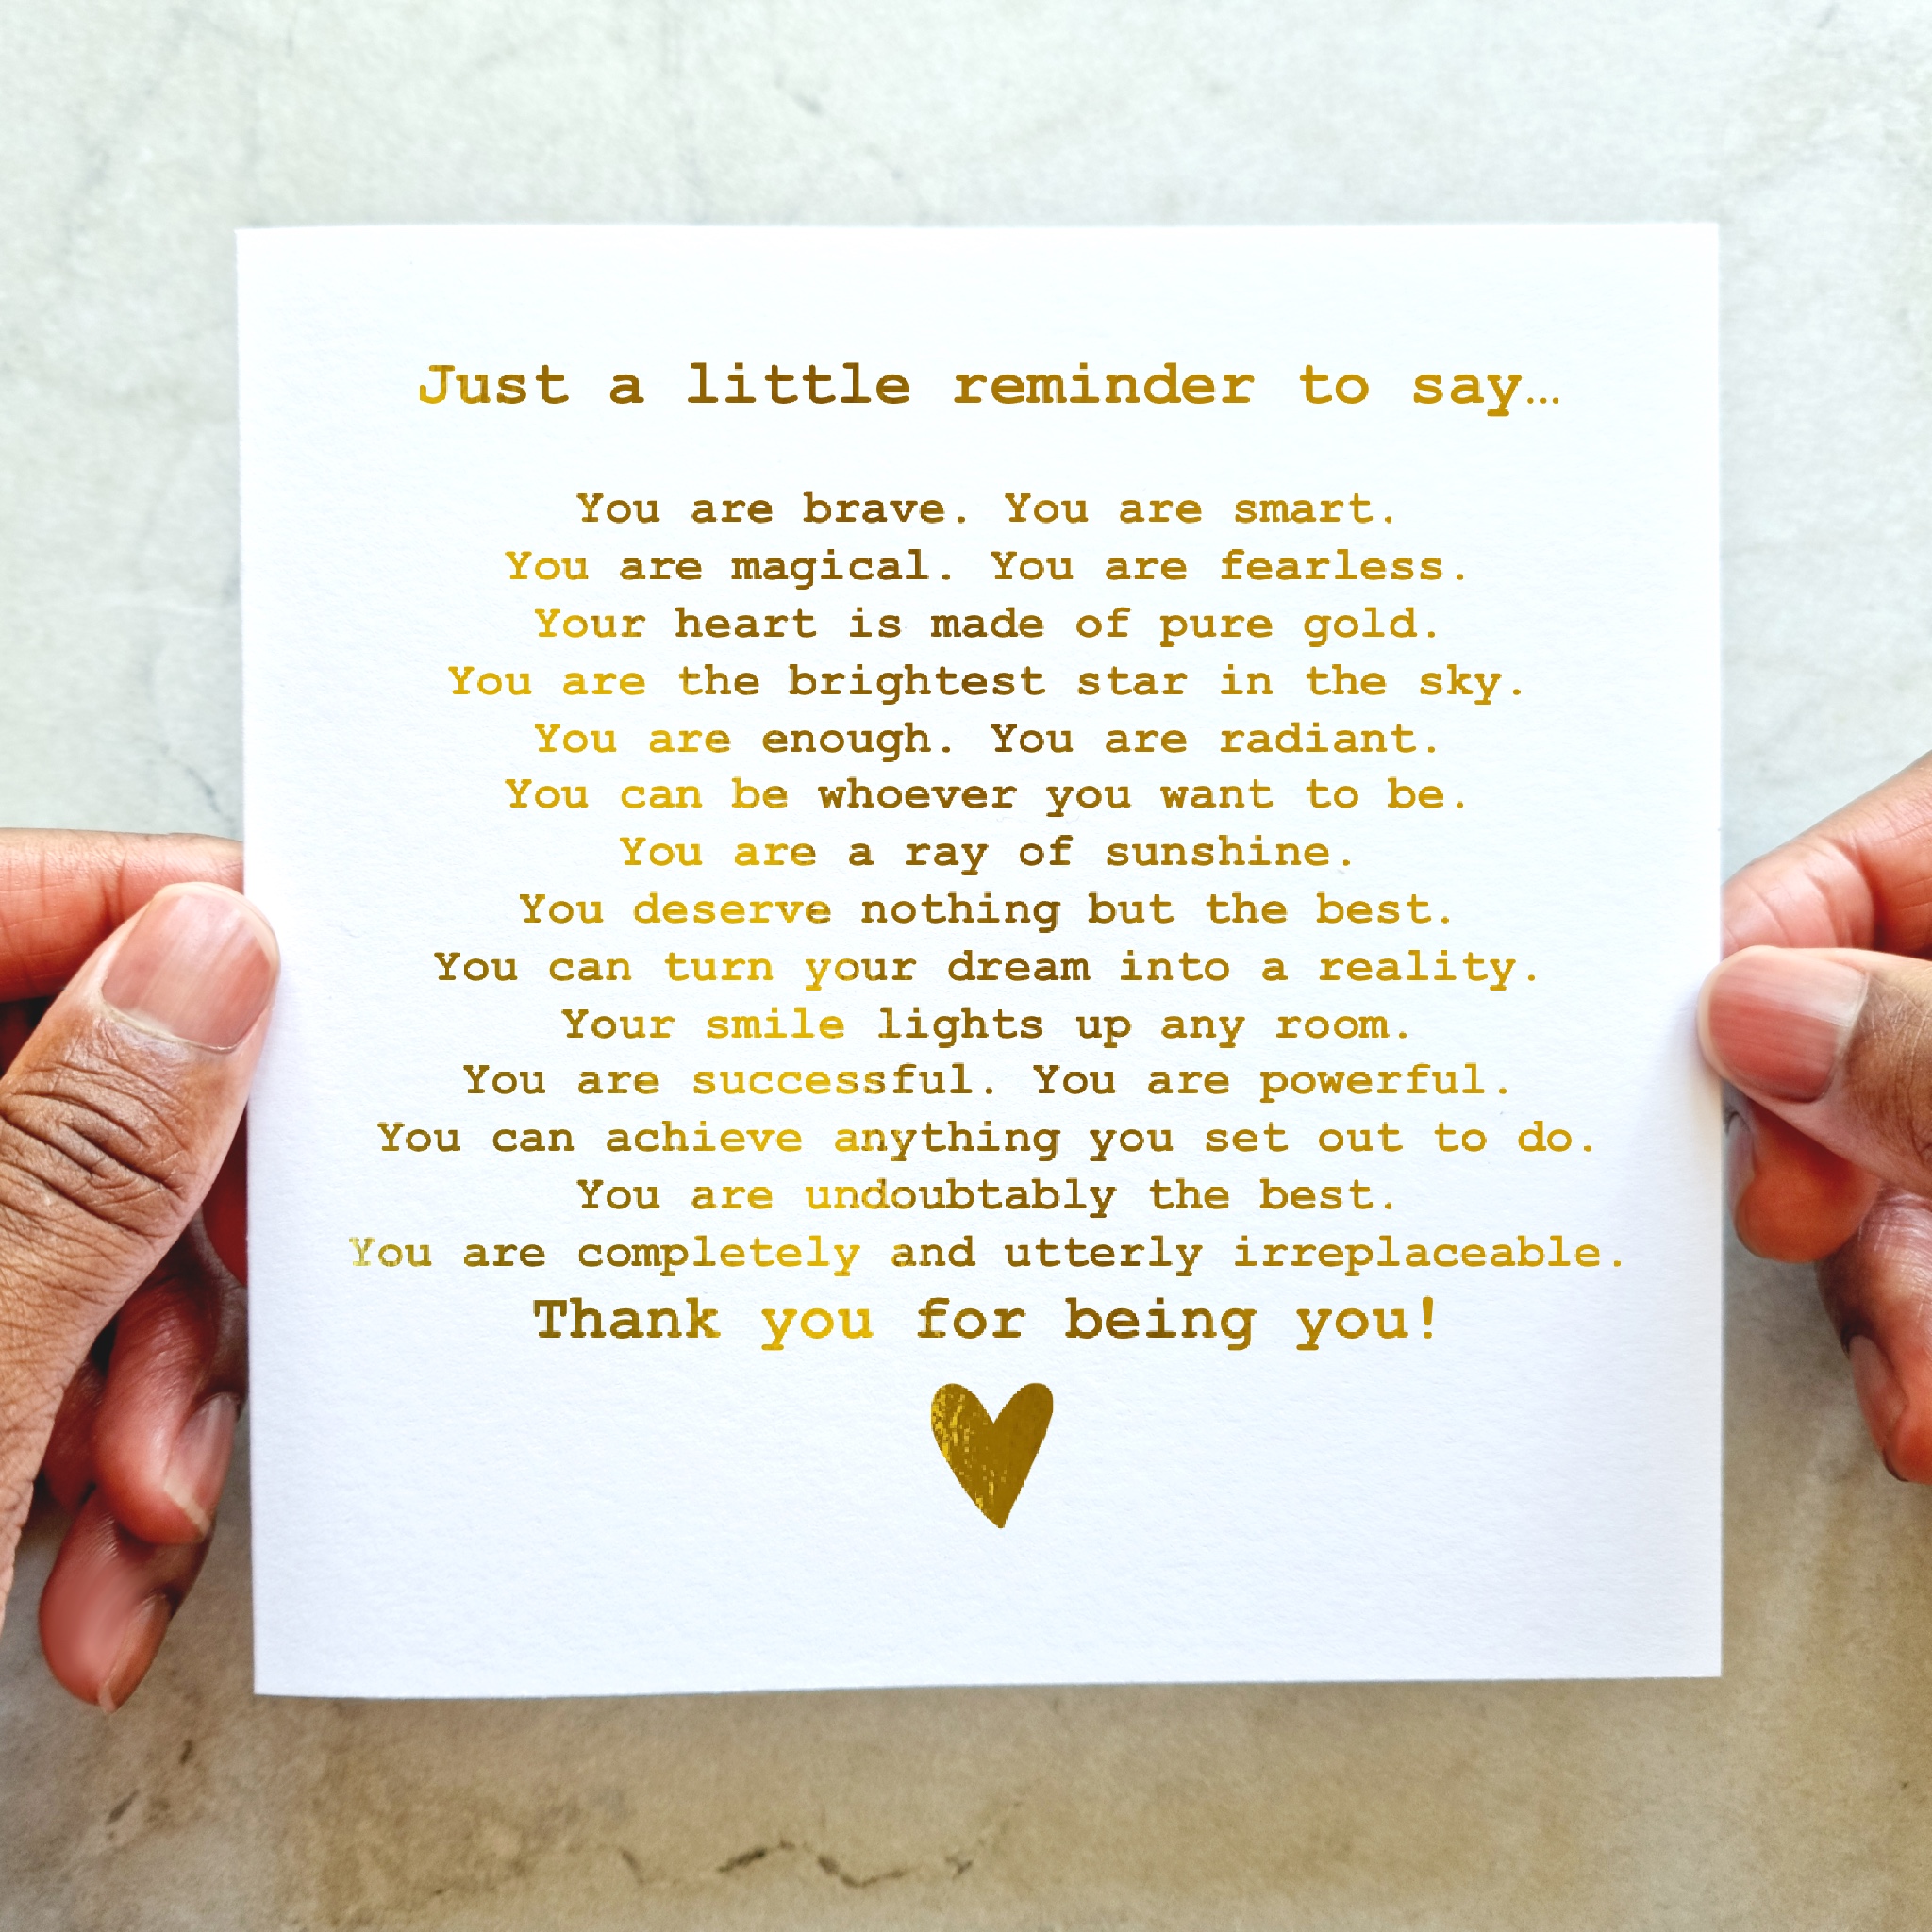 Just a little reminder to say…
You are brave. You are smart.
You are magical. You are fearless.
Your heart is made of pure gold.
You are the brightest star in the sky.
You are enough. You are radiant.
You can be whoever you want to be.
You are a ray of sunshine.
You deserve nothing but the best.
You can turn your dream into a reality.
Your smile lights up any room.
You are successful. You are powerful.
You can achieve anything you set out to do.
You are undoubtably the best.
You are completely and utterly irreplaceable.
Thank you for being you!